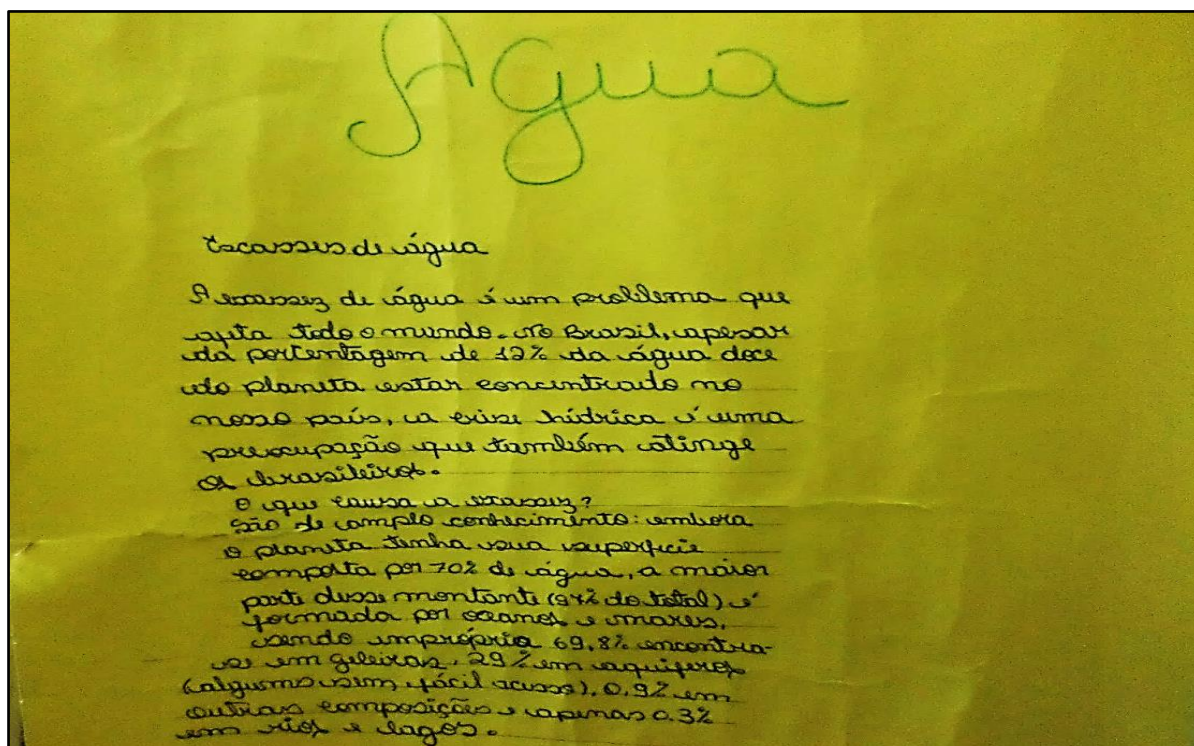 Água
Escasses de água
A escassez de água é um problema que
afeta todo o mundo. No Brasil, apesar
da porcentagem de 12% da água doce
do planeta estar concentrado no
nosso país, a crise hídrica é uma
preocupação que também atinge
os brasileiros.
O que causa a escassez?
São de amplo conhecimento: embora
o planeta tenha sua superfície
composta por 70% de água, a maior
parte desse montante (97% do total) é
formada por oceanos e mares,
sendo imprópria 69,8% encontra-
se em geleiras, 29% em aquíferos
(algumo sem fácil acesso), 0,9% em
outras composições e apenas 0.3%
em rios e lagos.